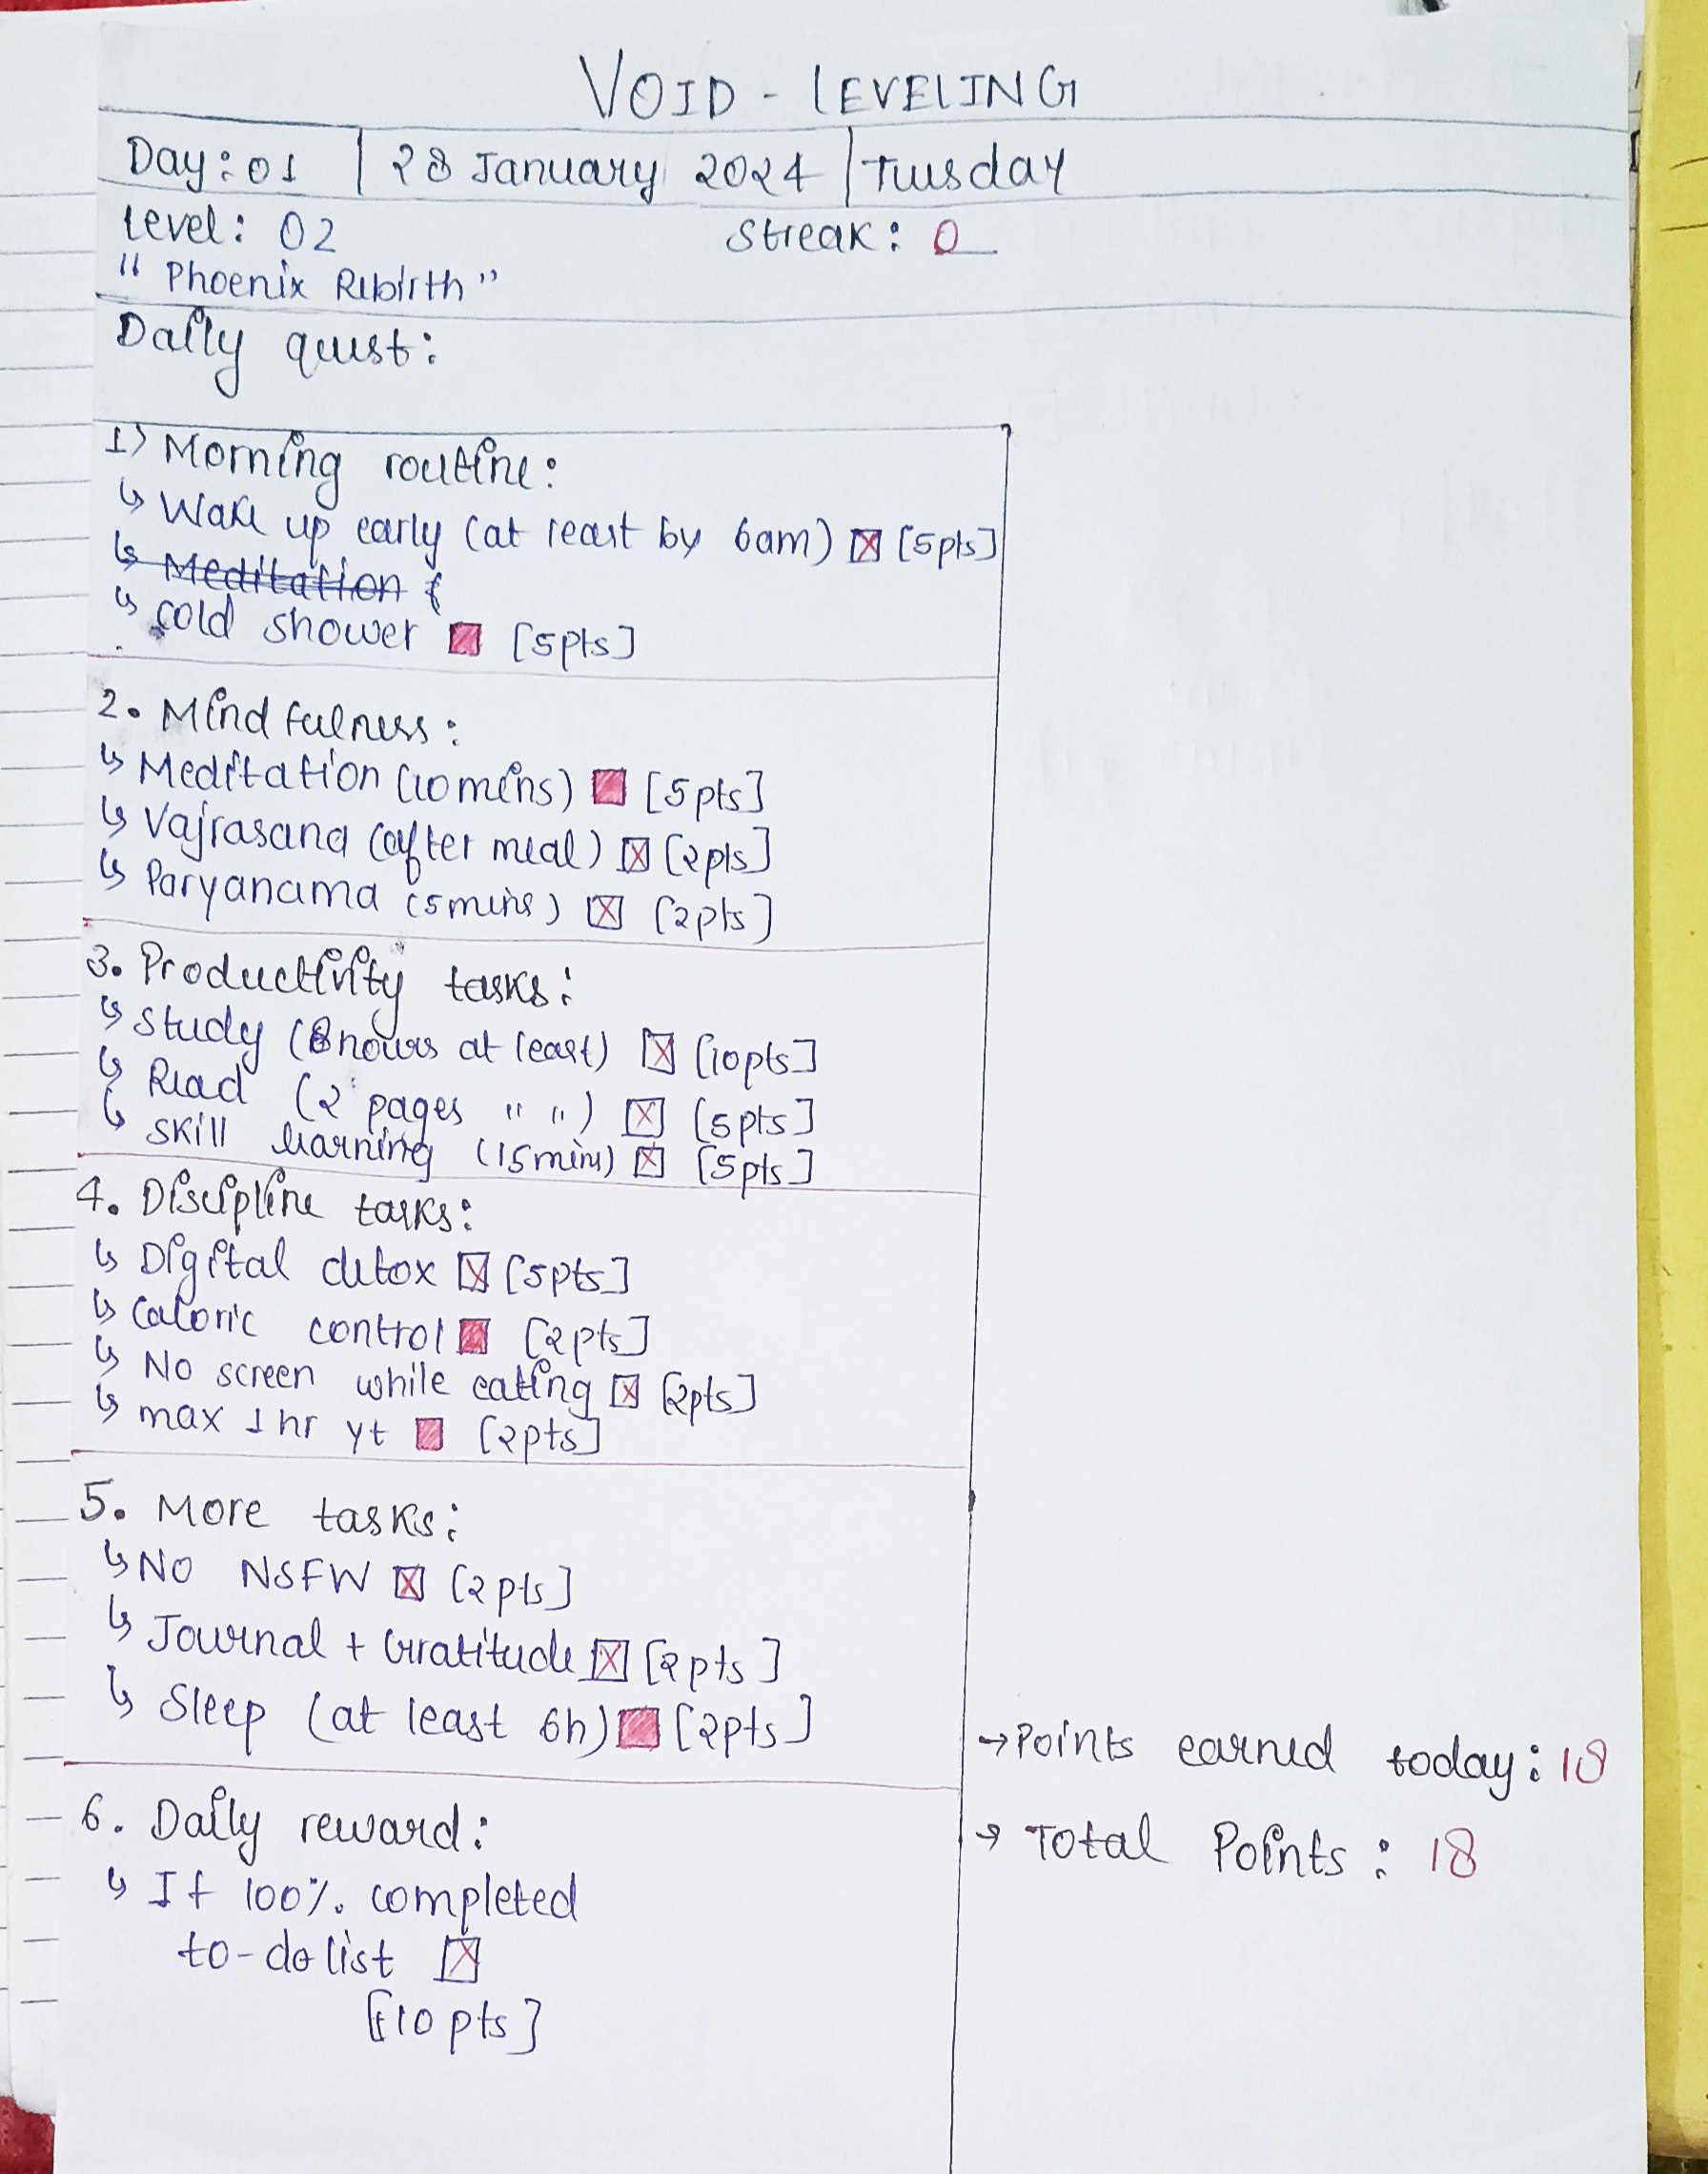 VOID - LEVELING
Day: 01 | 28 January 2024 | Tuesday
Level: 02 Streak: 0
"Phoenix Rebirth"
Daily quest:
1) Morning routine:
↳ Wake up early (at least by 6am) ☒ [5pts]
↳ Meditation
↳ cold shower [5pts]
2. Mindfulness:
↳ Meditation (10 mins) [5pts]
↳ Vajrasana (after meal) ☒ [2pts]
↳ Paryanama (5mins) ☒ [2pts]
3. Productivity tasks:
↳ Study (8 hours at least) ☒ [10pts]
↳ Read (2 pages " ") ☒ [5pts]
↳ Skill learning (15mins) ☒ [5pts]
4. Discipline tasks:
↳ Digital detox ☒ [5pts]
↳ Caloric control [2pts]
↳ No screen while eating ☒ [2pts]
↳ max 1 hr yt [2pts]
5. More tasks:
↳ No NSFW ☒ [2pts]
↳ Journal + Gratitude ☒ [2pts]
↳ Sleep (at least 6h) [2pts]
→ Points earned today: 18
→ Total Points: 18
6. Daily reward:
↳ If 100% completed
to-do list ☒
[10 pts]